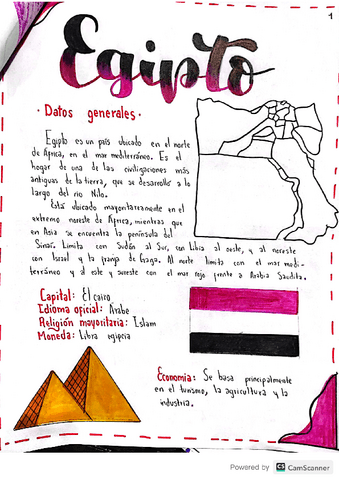 1
Egipto
· Datos generales ·
Egipto es un país ubicado en el norte
de África, en el mar mediterráneo. Es el
hogar de una de las civilizaciones más
antiguas de la tierra, que se desarrolló a lo
largo del rio Nilo.
Está ubicado mayoritariamente en el
extremo noreste de África, mientras que
en Asia se encuentra la península del
Sinaí. Limita con Sudán al Sur, con Libia al oeste, y al noreste
con Israel y la franja de Gaza. Al norte limita con el mar medi-
terráneo y al este y sureste con el mar rojo frente a Arabia Saudita.
Capital: El cairo
Idioma oficial: Árabe
Religión mayoritaria: Islam
Moneda: Libra egipcia
Economía: Se basa principalmente
en el turismo, la agricultura y la
industria.
Powered by CS CamScanner